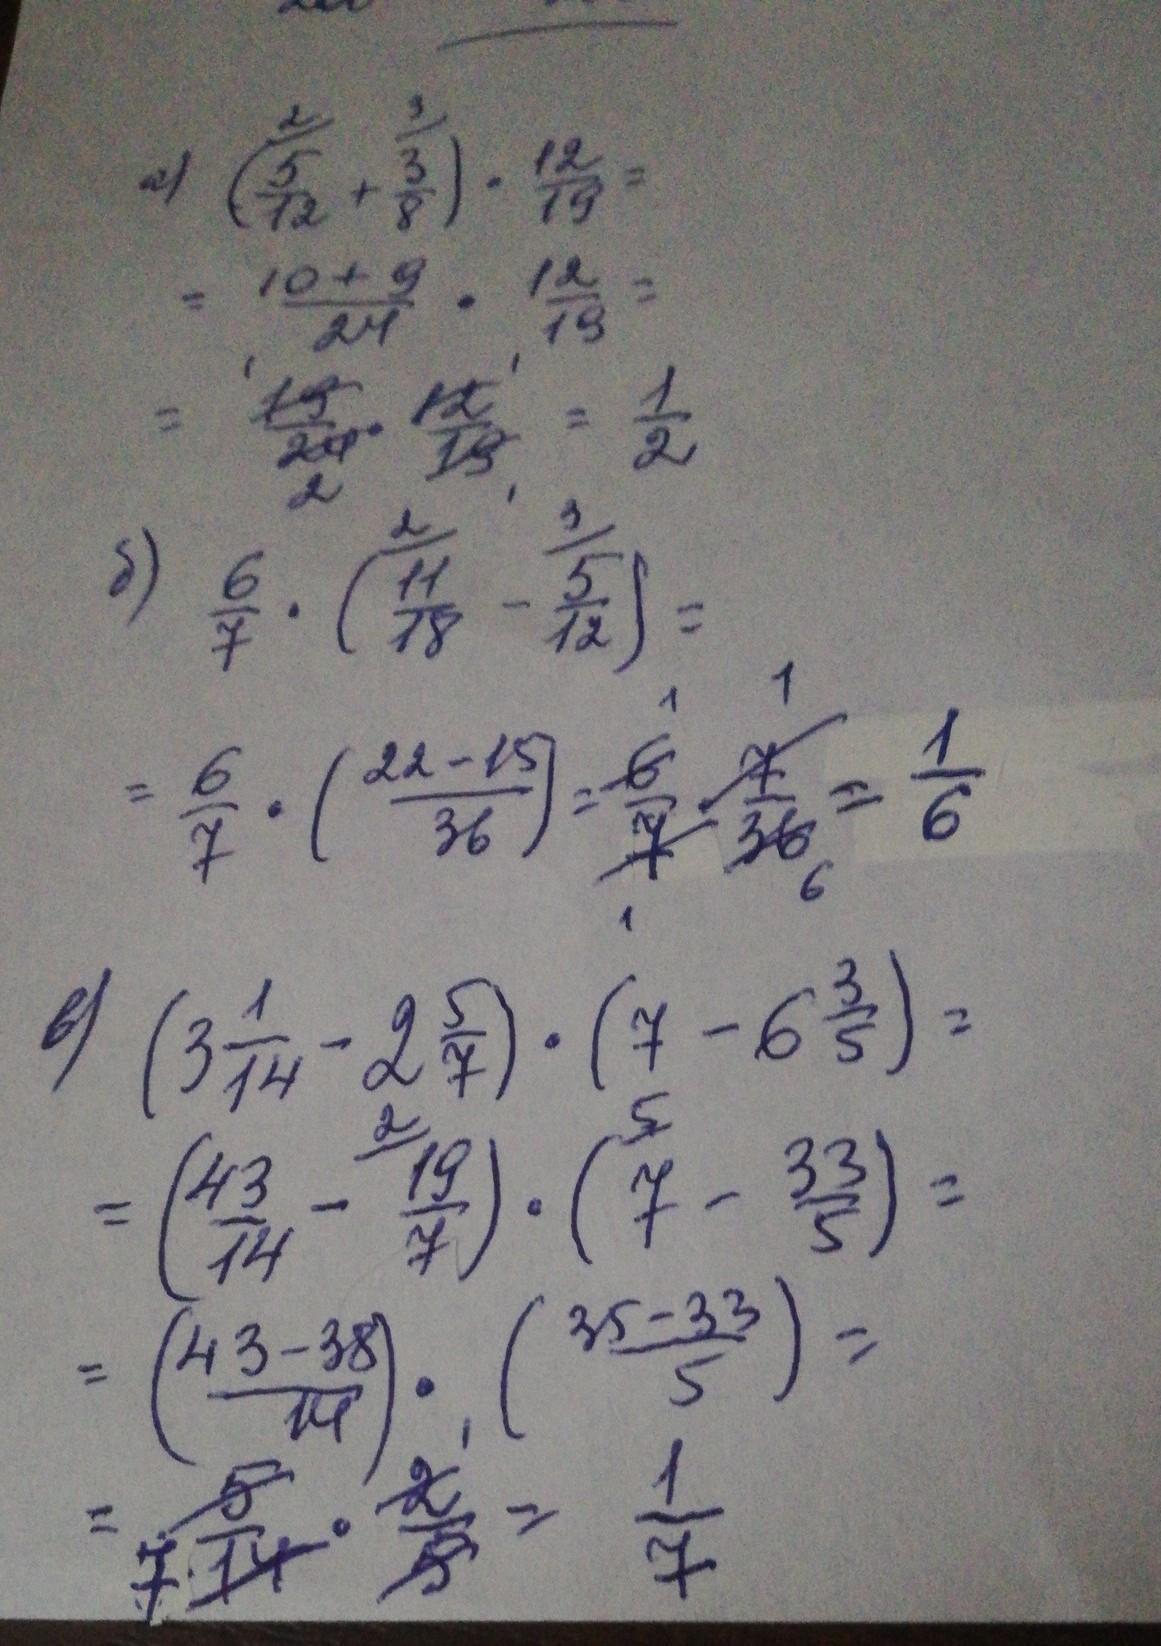 а) (5/12 + 3/8) · 12/19 =
= (10 + 9)/24 · 12/19 =
= 19/24 · 12/19 = 1/2
б) 6/7 · (11/18 - 5/12) =
= 6/7 · ((22 - 15)/36) = 6/7 · 7/36 = 1/6
в) (3 1/14 - 2 5/7) · (7 - 6 3/5) =
= (43/14 - 19/7) · (7 - 33/5) =
= ((43 - 38)/14) · ((35 - 33)/5) =
= 5/14 · 2/5 = 1/7